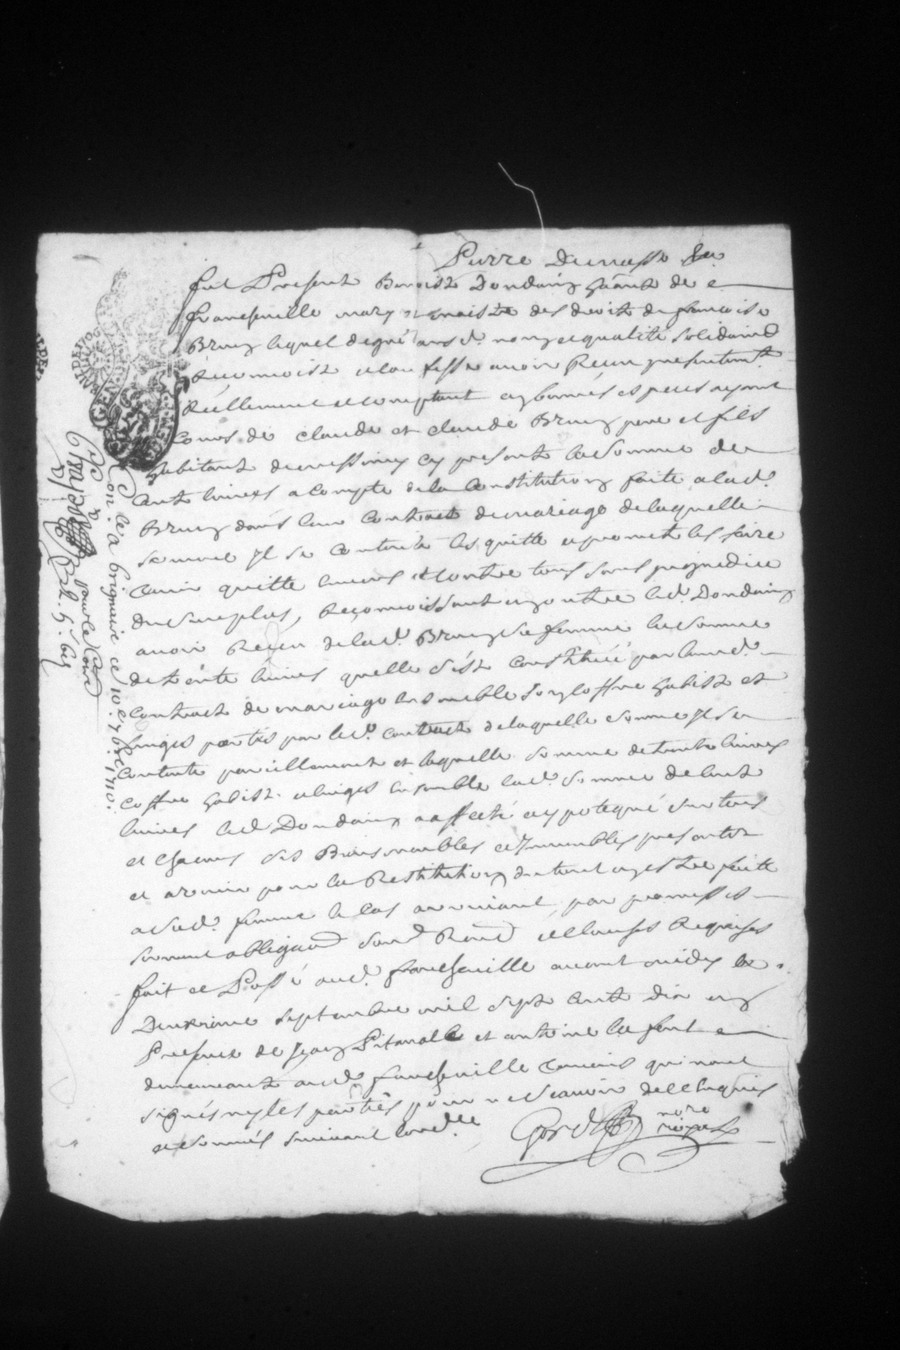 Pierre
fut Present Benoist Dondain habitant de
francheville mary et maistre des droits de francoise
Brun lequel degré aud. nom et qualité solidaire
Reconnoist et confesse avoir Receu presentement
Reellement et comptant en bonnes especes ayant
Cours de Claude et Claude Brun pere et fils
habitant de messimy cy present la somme de
Cent livres a compte de la Constitution faite a lad.
Brun dans leur Contract de mariage de laquelle
somme Il se contente les quitte et promet les faire
tenir quitte envers et contre tous sans prejudice
du surplus, Reconnoissant en outre led. Dondain
avoir Receu de lad. Brun sa femme la somme
de trente livres quelle s'est constituée par leurd.
contract de mariage ensemble son coffre habist et
linges portés par led. contract de laquelle somme Il se
contente pareillement et laquelle somme de trente livres
coffre habist et linges ensemble lad. somme de cent
livres led. Dondain a affecté et ypotequé sur tous
et chacuns ses Biens meubles et Immeubles presents
et avenir pour la Restitution en estre faitte
a sad. femme le cas avenant, par promesses
serment obligaon. soum. Renon. et clauses Requises
fait et Passé aud. francheville avant midy le
Deuxieme septembre mil sept cents dix en
Presence de Jean Pitaval et antoine la font
demeurants aud. francheville temoins qui n'ont
signés ny les parties pour ne sçavoir de ce enquis
et sommés suivant lord.ce
nore
royal
Con.lé a brignais ce 10e 7bre 1710.